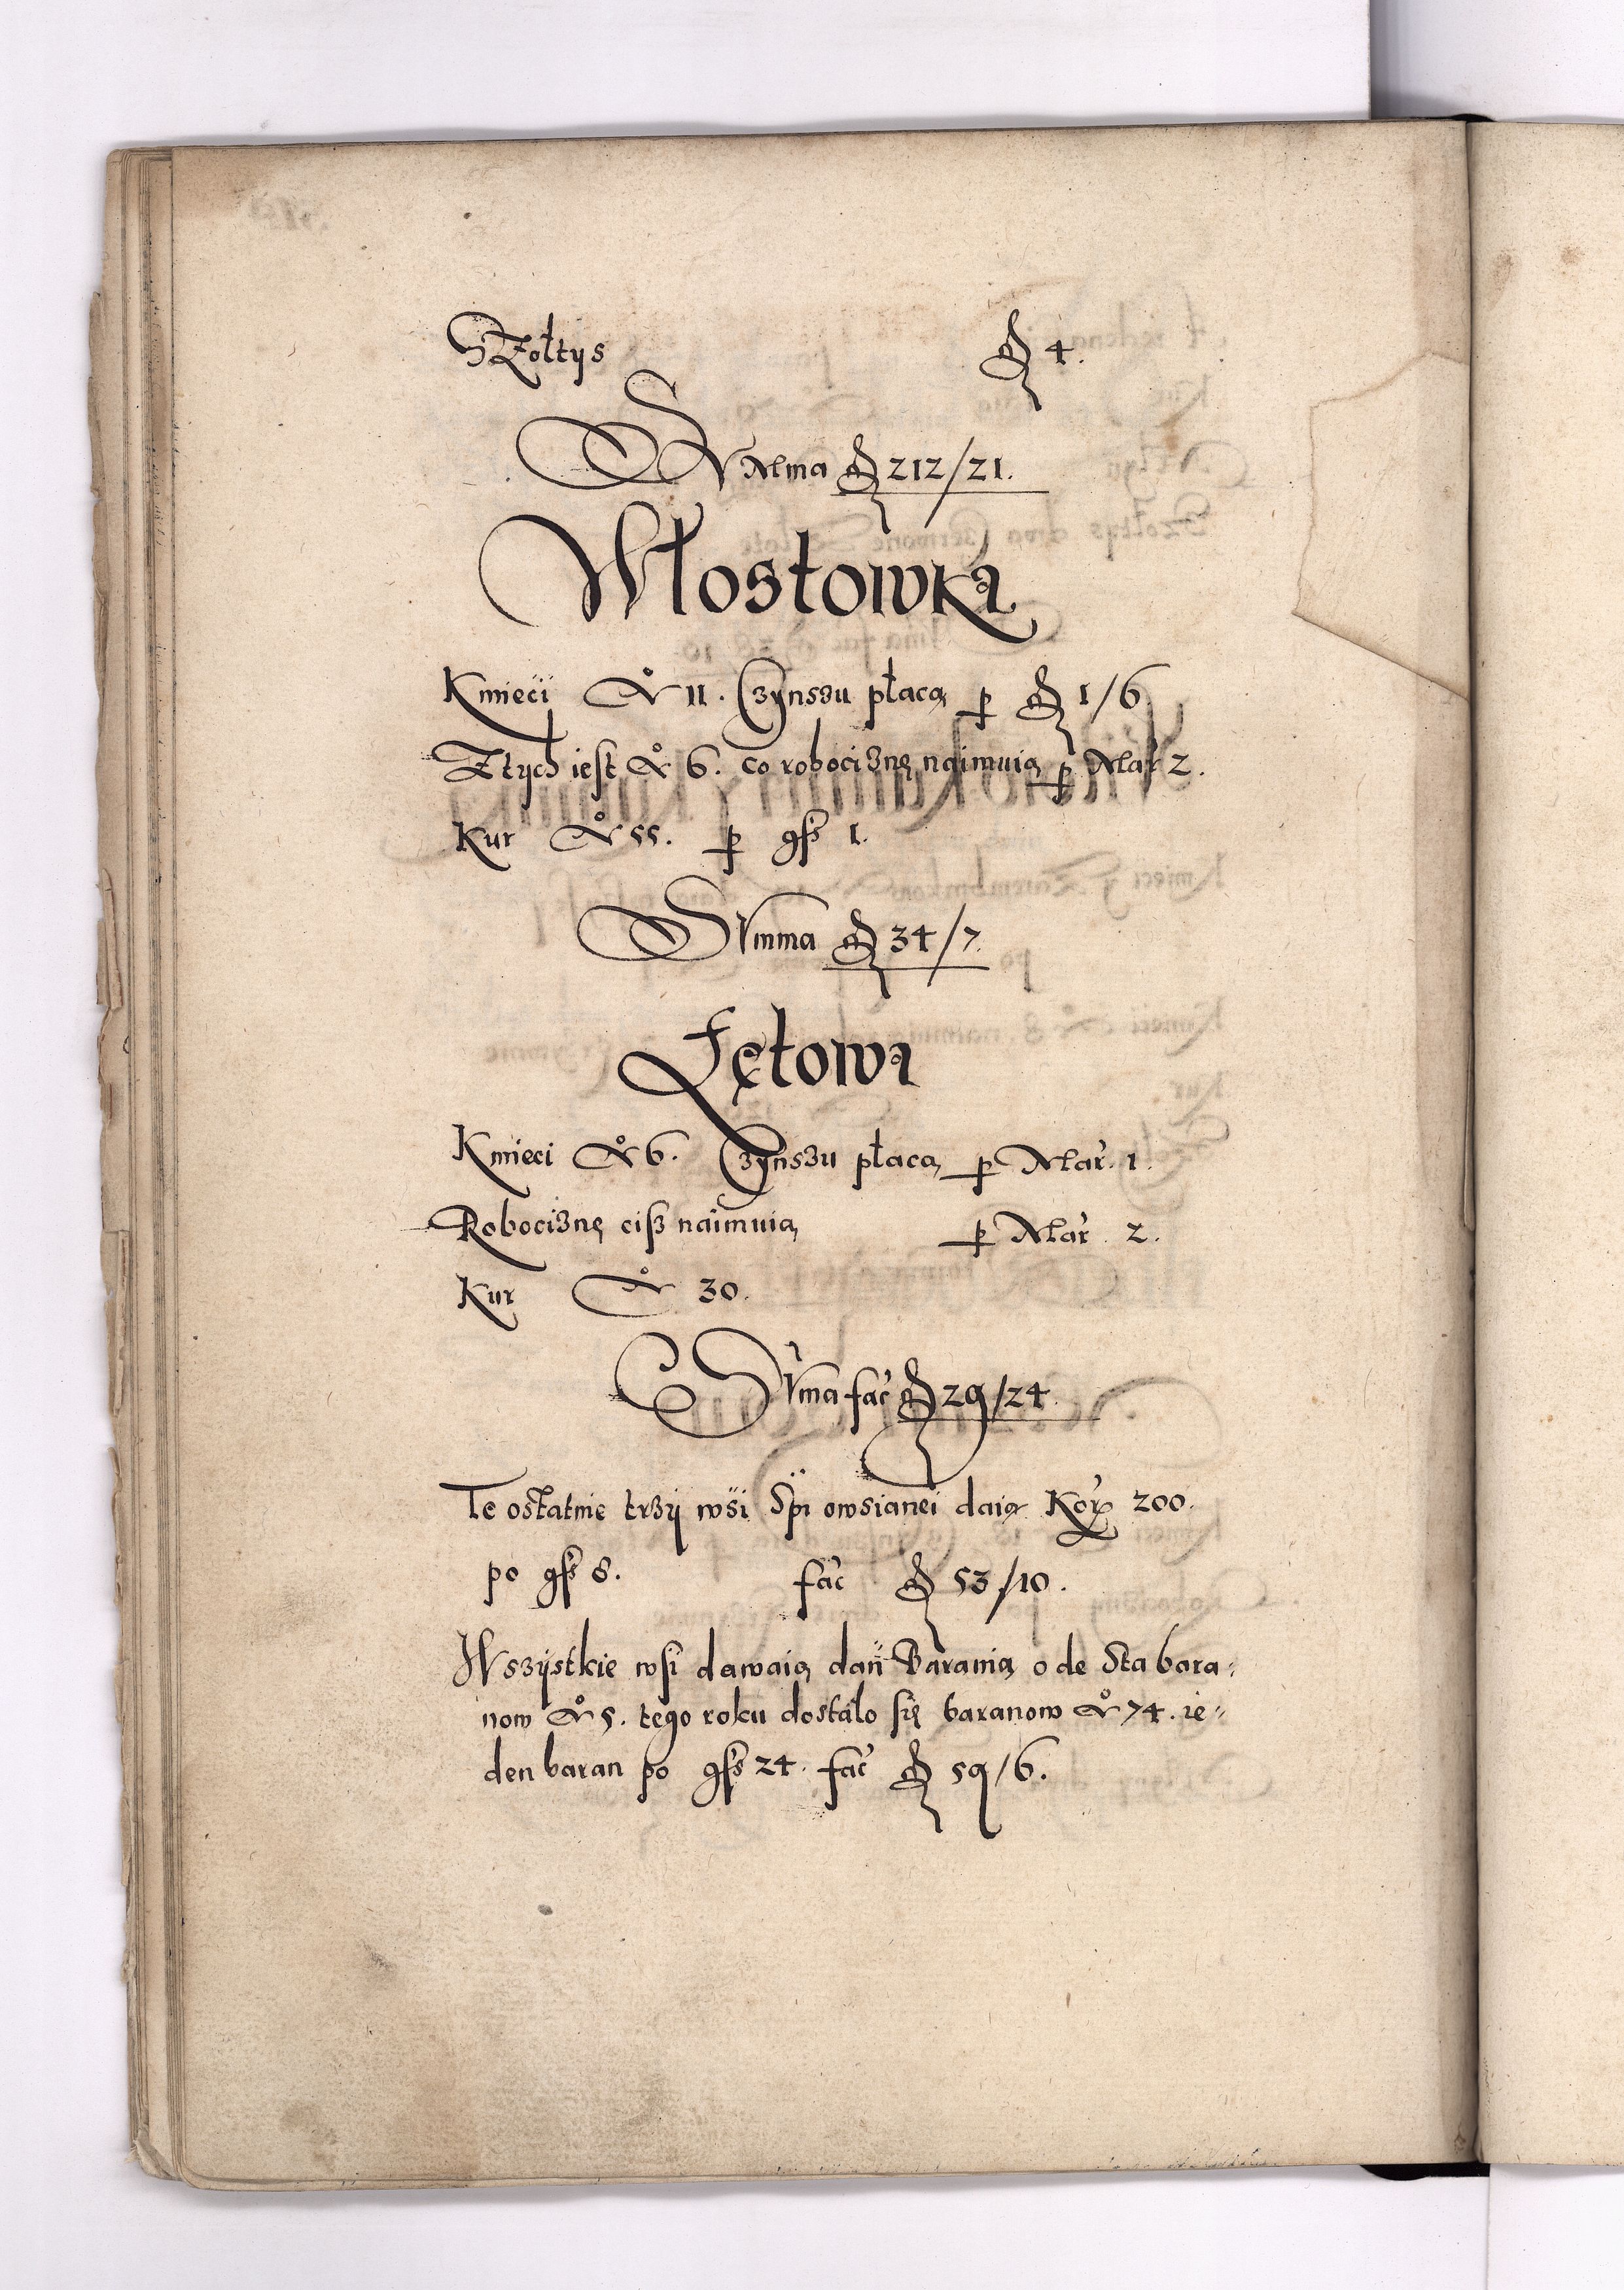 Szołtys fl 4.
Summa fl 212/21.
Włostowka
Kmieci No 11. Czynszu płacą per fl 1/6
Z tych iest No 6. co robociznę naimuią per Mar 2.
Kur No 55. per gß 1.
Summa fl 34/7.
Łętowa
Kmieci No 6. Czynszu płacą per Mar. 1.
Robociznę ciß naimuią per Mar. 2.
Kur No 30.
Suma fac fl 29/24.
Te ostatnie trzÿ wsi Spi owsianei daią Kor 200.
po gß 8. fac fl 53/10.
Wszÿstkie wsi dawaią dań Baranią o de Sta bara=
now No 5. tego roku dostało się baranow No 74. ie=
den baran po gß 24. fac fl 59/6.